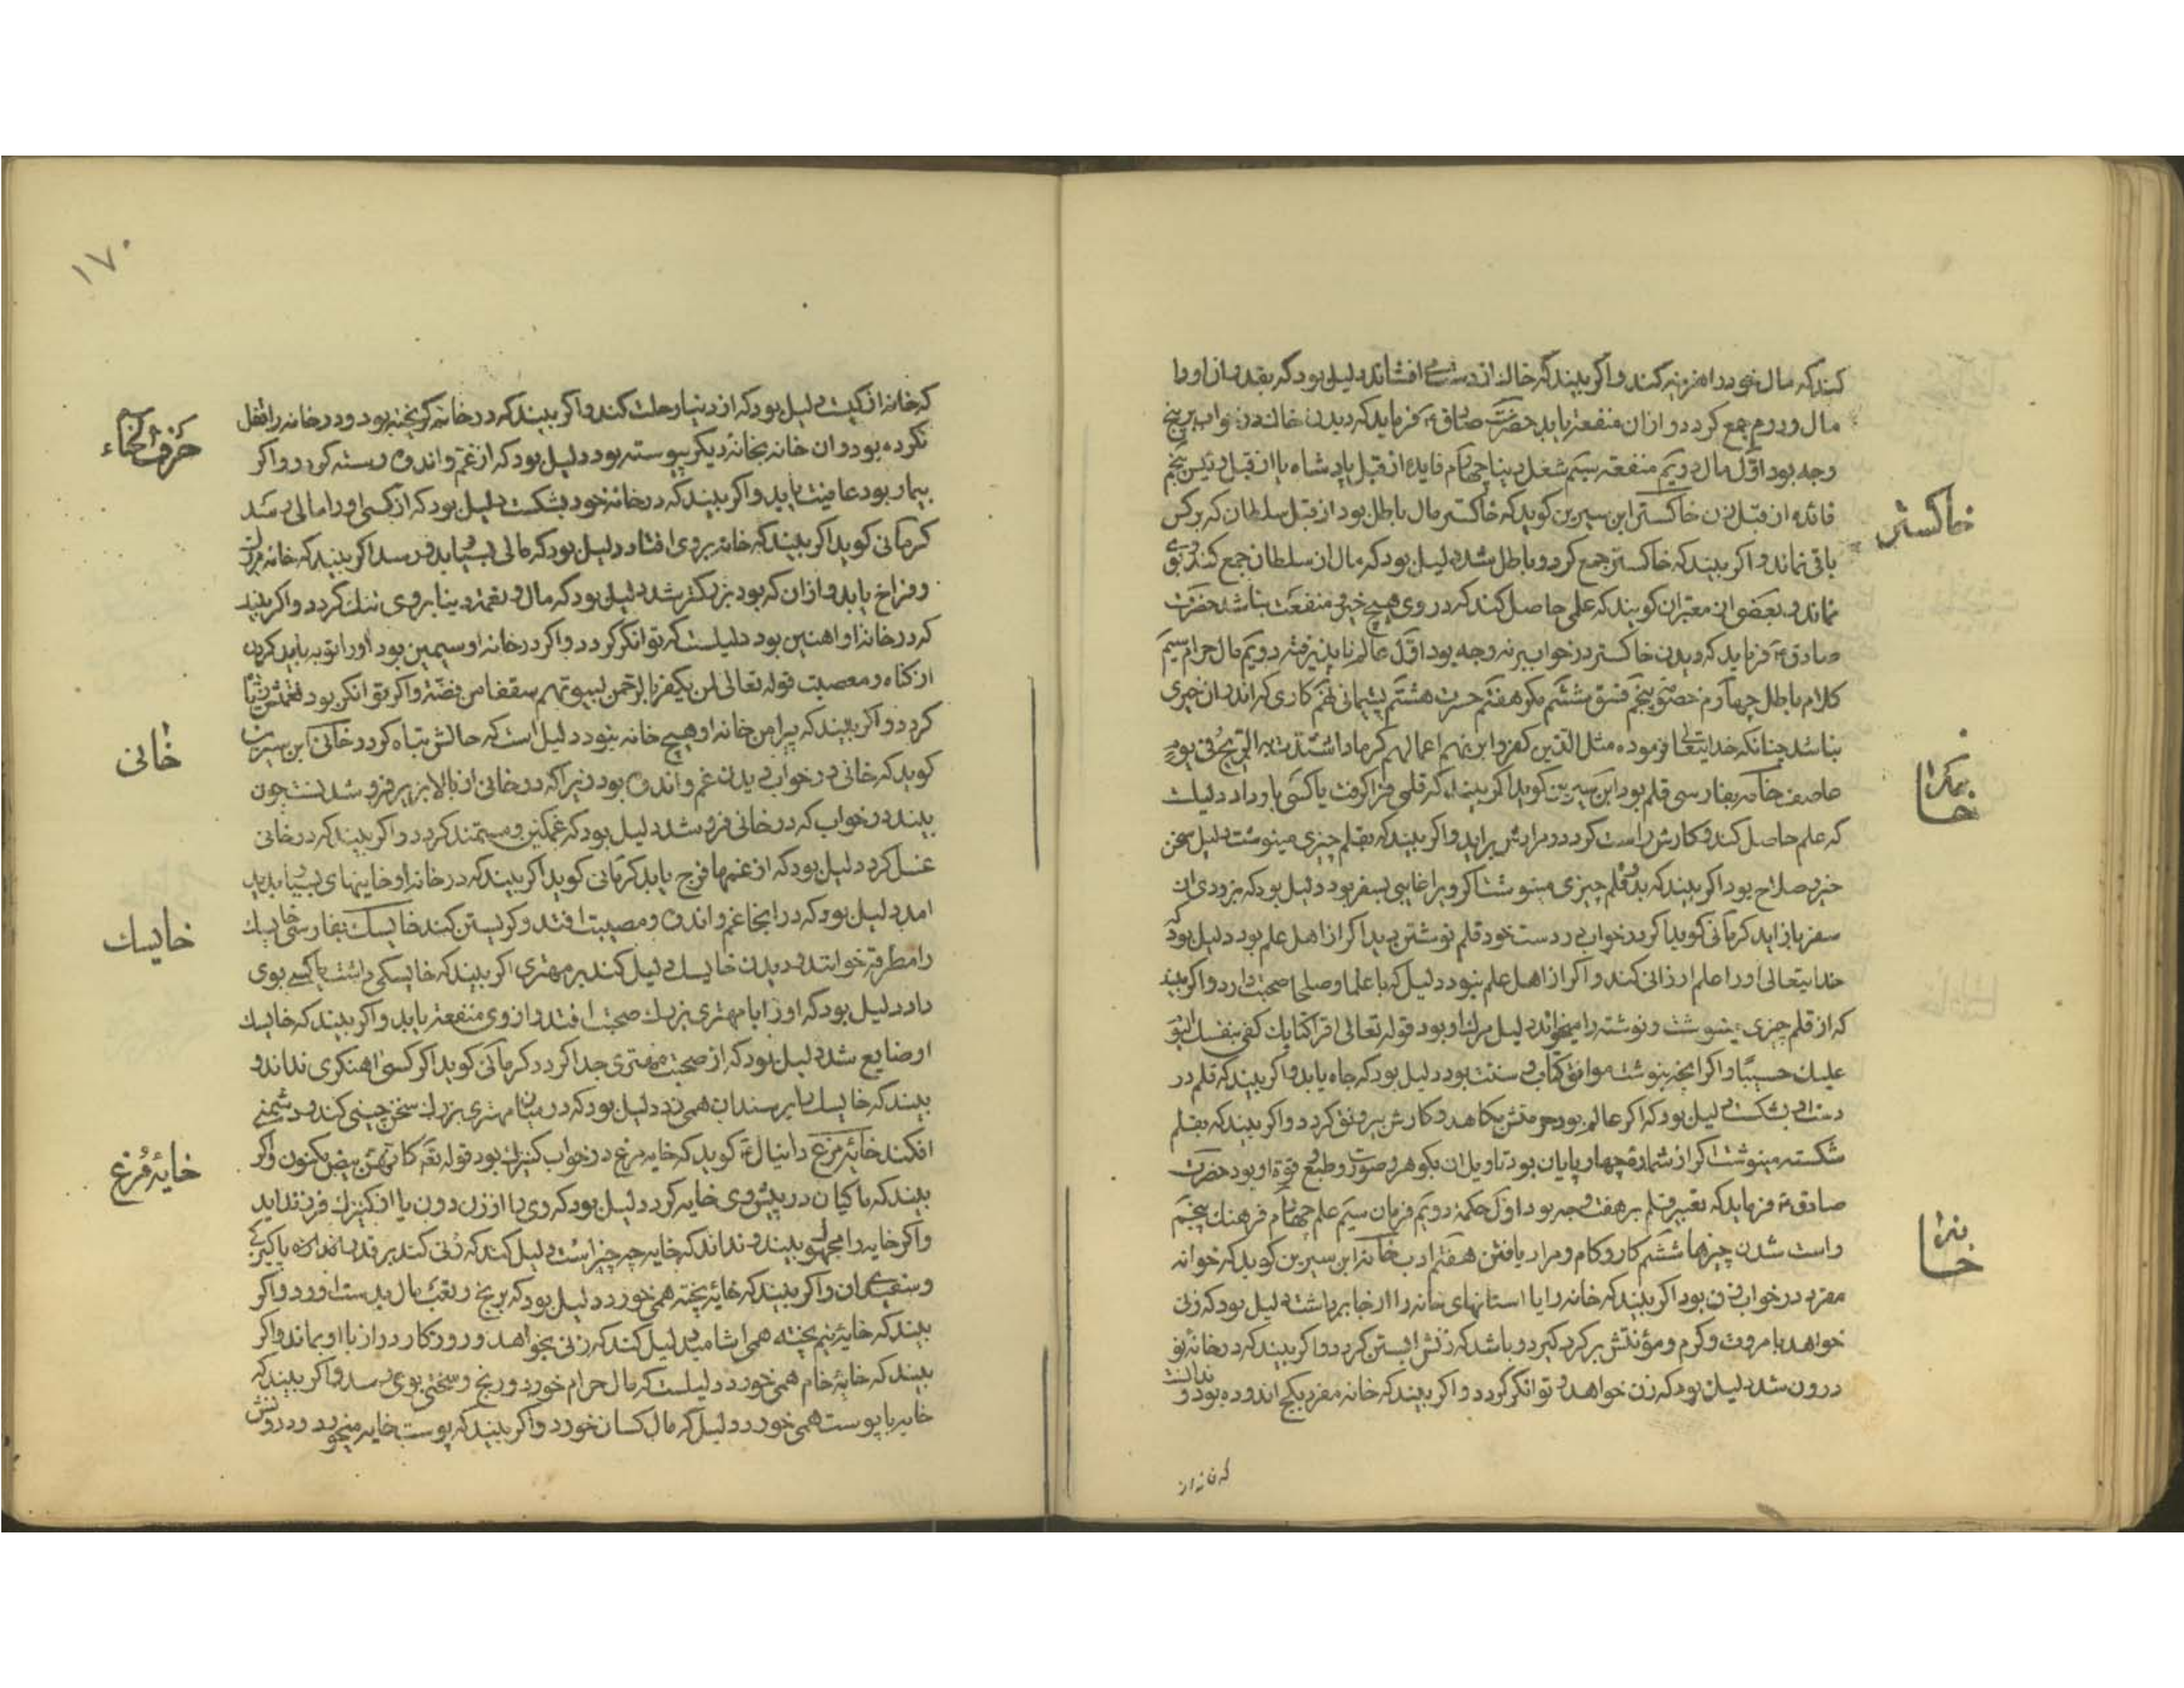 کند که مال خود را هزینه کند و اگر بیند که خاک از دست می افشاند دلیل بود که بقدر ان او را
مال و درم جمع کردد و از ان منفعة یابد حضرت صادق ع فرماید که دیدن خاک در خواب بر پنج
وجه بود اوّل مال دویّم منفعة سیّم شغل دنیا چهارم فایده از قبل پادشاه یا از قبل رئیس پنجم
فائده از قبل زن خاکستر ابن سیرین کوید که خاکستر مال باطل بود از قبل سلطان که بر کس
باقی نماند و اگر بیند که خاکستر جمع کرد و باطل شد دلیل بود که مال از سلطان جمع کند بر وی
نماند و بعضی از معبّران کویند که علمی حاصل کند که در وی هیچ خیر و منفعت نباشد حضرت
صادق ع فرماید که دیدن خاکستر در خواب بر نه وجه بود اوّل عالم ناپذیرفته دویّم مال حرام سیّم
کلام باطل چهارم خصومة پنجم فسق ششم مکر هفتم حسرت هشتم پشیمانی نهم کاری که اندر ان خیری
نباشد چنانکه خدایتعالی فرموده مثل الذین کفروا بربهم اعمالهم کرماد اشتدت به الریح فی یوم
عاصف خامه بفارسی قلم بود ابن سیرین کوید اگر بیند که قلمی فرا کرفت یا کسی باو داد دلیلست
که علم حاصل کند و کارش راست کردد و مرادش براید و اگر بیند که بقلم چیزی مینوشت دلیل سخن
خیر و صلاح بود اگر بیند که بدو قلم چیزی مینوشت اگر ویرا غایبی بسفر بود دلیل بود که بزودی از
سفر باز اید کرمانی کوید اگر در خواب در دست خود قلم نوشتن دید اگر از اهل علم بود دلیل بود که
خدایتعالی او را علم ارزانی کند و اگر از اهل علم نبود دلیل که با علما و صلحا صحبت دارد و اگر بیند
که از قلم چیزی مینوشت و نوشته را میخواند دلیل مرک او بود قوله تعالی اقرا کتابک کفی بنفسک الیوم
علیک حسیبًا و اگر انچه بنوشته موافق کتاب و سنت بود دلیل بود که جاه یابد و اگر بیند که قلم در
دست او بشکست دلیل بود که اگر عالم بود حرمتش بکاهد و کارش بیرونق کردد و اگر بیند که بقلم
شکسته مینوشت اگر از شماره چهار پایان بود تاویل ان بکوهر و صورت و طبع و قوة او بود حضرت
صادق ع فرماید که تعبیر قلم بر هفت وجه بود اوّل حکمة دویم فرمان سیّم علم چهارم فرهنک پنجم
راست شدن چیزها ششم کار و کام و مراد یافتن هفتم ادب خانه ابن سیرین کوید که خوانه
مفرد در خواب زن بود اگر بیند که خانه را یا استانهای خانه را از جا برداشت دلیل بود که زنی
خواهد با مروت و کرم و مؤنتش بر کردن کیرد و باشد که زنش ابستن کردد و اگر بیند که در خانهٔ نو
درون شد دلیل بود که زن خواهد و توانکر کردد و اگر بیند که خانه مفرد بکچ اندوده بود و ندانست
که خانه از
خاکستر
خامه
خانه
۱۷۰
که خانه از کیست دلیل بود که از دنیا رحلت کند و اگر بیند که در خانه کریخته بود و در خانه را قفل
نکرده بود و ان خانه بخانهٔ دیکر پیوسته بود دلیل بود که از غم و اندوه رسته کردد و اگر
بیمار بود عافیت یابد و اگر بیند که در خانهٔ خود بشکست دلیل بود که از کسی او را مالی رسد
کرمانی کوید اگر بیند که خانه بر وی افتاد دلیل بود که مالی بسیار بدو رسد اگر بیند که خانه بزرک
و فراخ یابد و از ان که بود بزرکتر شد دلیل بود که مال و نعمة دنیا بر وی تنک کردد و اگر بیند
که در خانهٔ او اهنین بود دلیلست که توانکر کردد و اگر در خانهٔ او سیمین بود او را توبه باید کردن
از کناه و معصیت قوله تعالی لمن یکفر بالرحمن لبیوتهم سقفا من فضة و اگر توانکر بود
کردد و اگر بیند که پیرامن خانهٔ او هیچ خانه نبود دلیل است که حالش تباه کردد خانی ابن سیرین
کوید که خانی در خواب دیدن غم و اندوه بود زیرا که در خانی از بالا بزیر فرو شدنست چون
بیند در خواب که در خانی فرو شد دلیل بود که غمکین و مستمند کردد و اگر بیند که در خانی
غسل کرد دلیل بود که از غمها فرج یابد کرمانی کوید اگر بیند که در خانهٔ او خانیهای بسیار پدید
امد دلیل بود که در انجا غم و اندوه و مصیبت افتد و کریستن کنند خایسک بفارسی خایسک
را مطرقه خوانند و دیدن خایسک دلیل کند بر مهتری اگر بیند که خایسکی داشت یا کسی بوی
داد دلیل بود که او را با مهتری بزرک صحبت افتد و از وی منفعة یابد و اگر بیند که خایسک
او ضایع شد دلیل بود که از صحبت مهتری جدا کردد کرمانی کوید اگر کسی اهنکری نداند و
بیند که خایسک را بر سندان همی زد دلیل بود که در میان مهتری بزرک سخن چینی کند و دشمنی
افکند خایهٔ مرغ دانیال ع کوید که خایهٔ مرغ در خواب کنیزک بود قوله تع کانهن بیض مکنون و اگر
بیند که ماکیان در پیش وی خایه کرد دلیل بود که وی را از زن دون یا از کنیزک فرزند اید
و اگر خایه را مجهول بیند و نداند که خایه چه چیز است دلیل کند که زنی کند بر قدر اندازه پاکیزکی
و سفیدی ان و اگر بیند که خایهٔ پخته همی خورد دلیل بود که برنج و تعب مال بدست اورد و اگر
بیند که خایهٔ نیم پخته همی اشامید دلیل کند که زنی بخواهد و روزکار دراز با او بماند و اگر
بیند که خایهٔ خام همی خورد دلیلست که مال حرام خورد و رنج و سختی بوی رسد و اگر بیند که
خایه با پوست همی خورد دلیل که مال کسان خورد و اگر بیند که پوست خایه میخورد و درونش
حرف الخاء
خانی
خایسک
خایهٔ مرغ